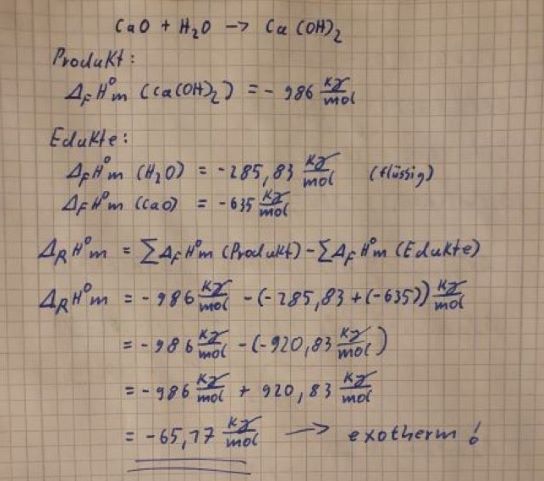 CaO + H₂O → Ca(OH)₂
Produkt:
ΔfH⁰m (Ca(OH)₂) = - 986 kJ/mol
Edukte:
ΔfH⁰m (H₂O) = -285,83 kJ/mol (flüssig)
ΔfH⁰m (CaO) = -635 kJ/mol
ΔRH⁰m = ∑ΔfH⁰m (Produkt) - ∑ΔfH⁰m (Edukte)
ΔRH⁰m = - 986 kJ/mol - (-285,83 + (-635)) kJ/mol
= - 986 kJ/mol - (-920,83 kJ/mol)
= - 986 kJ/mol + 920,83 kJ/mol
= -65,17 kJ/mol → exotherm!